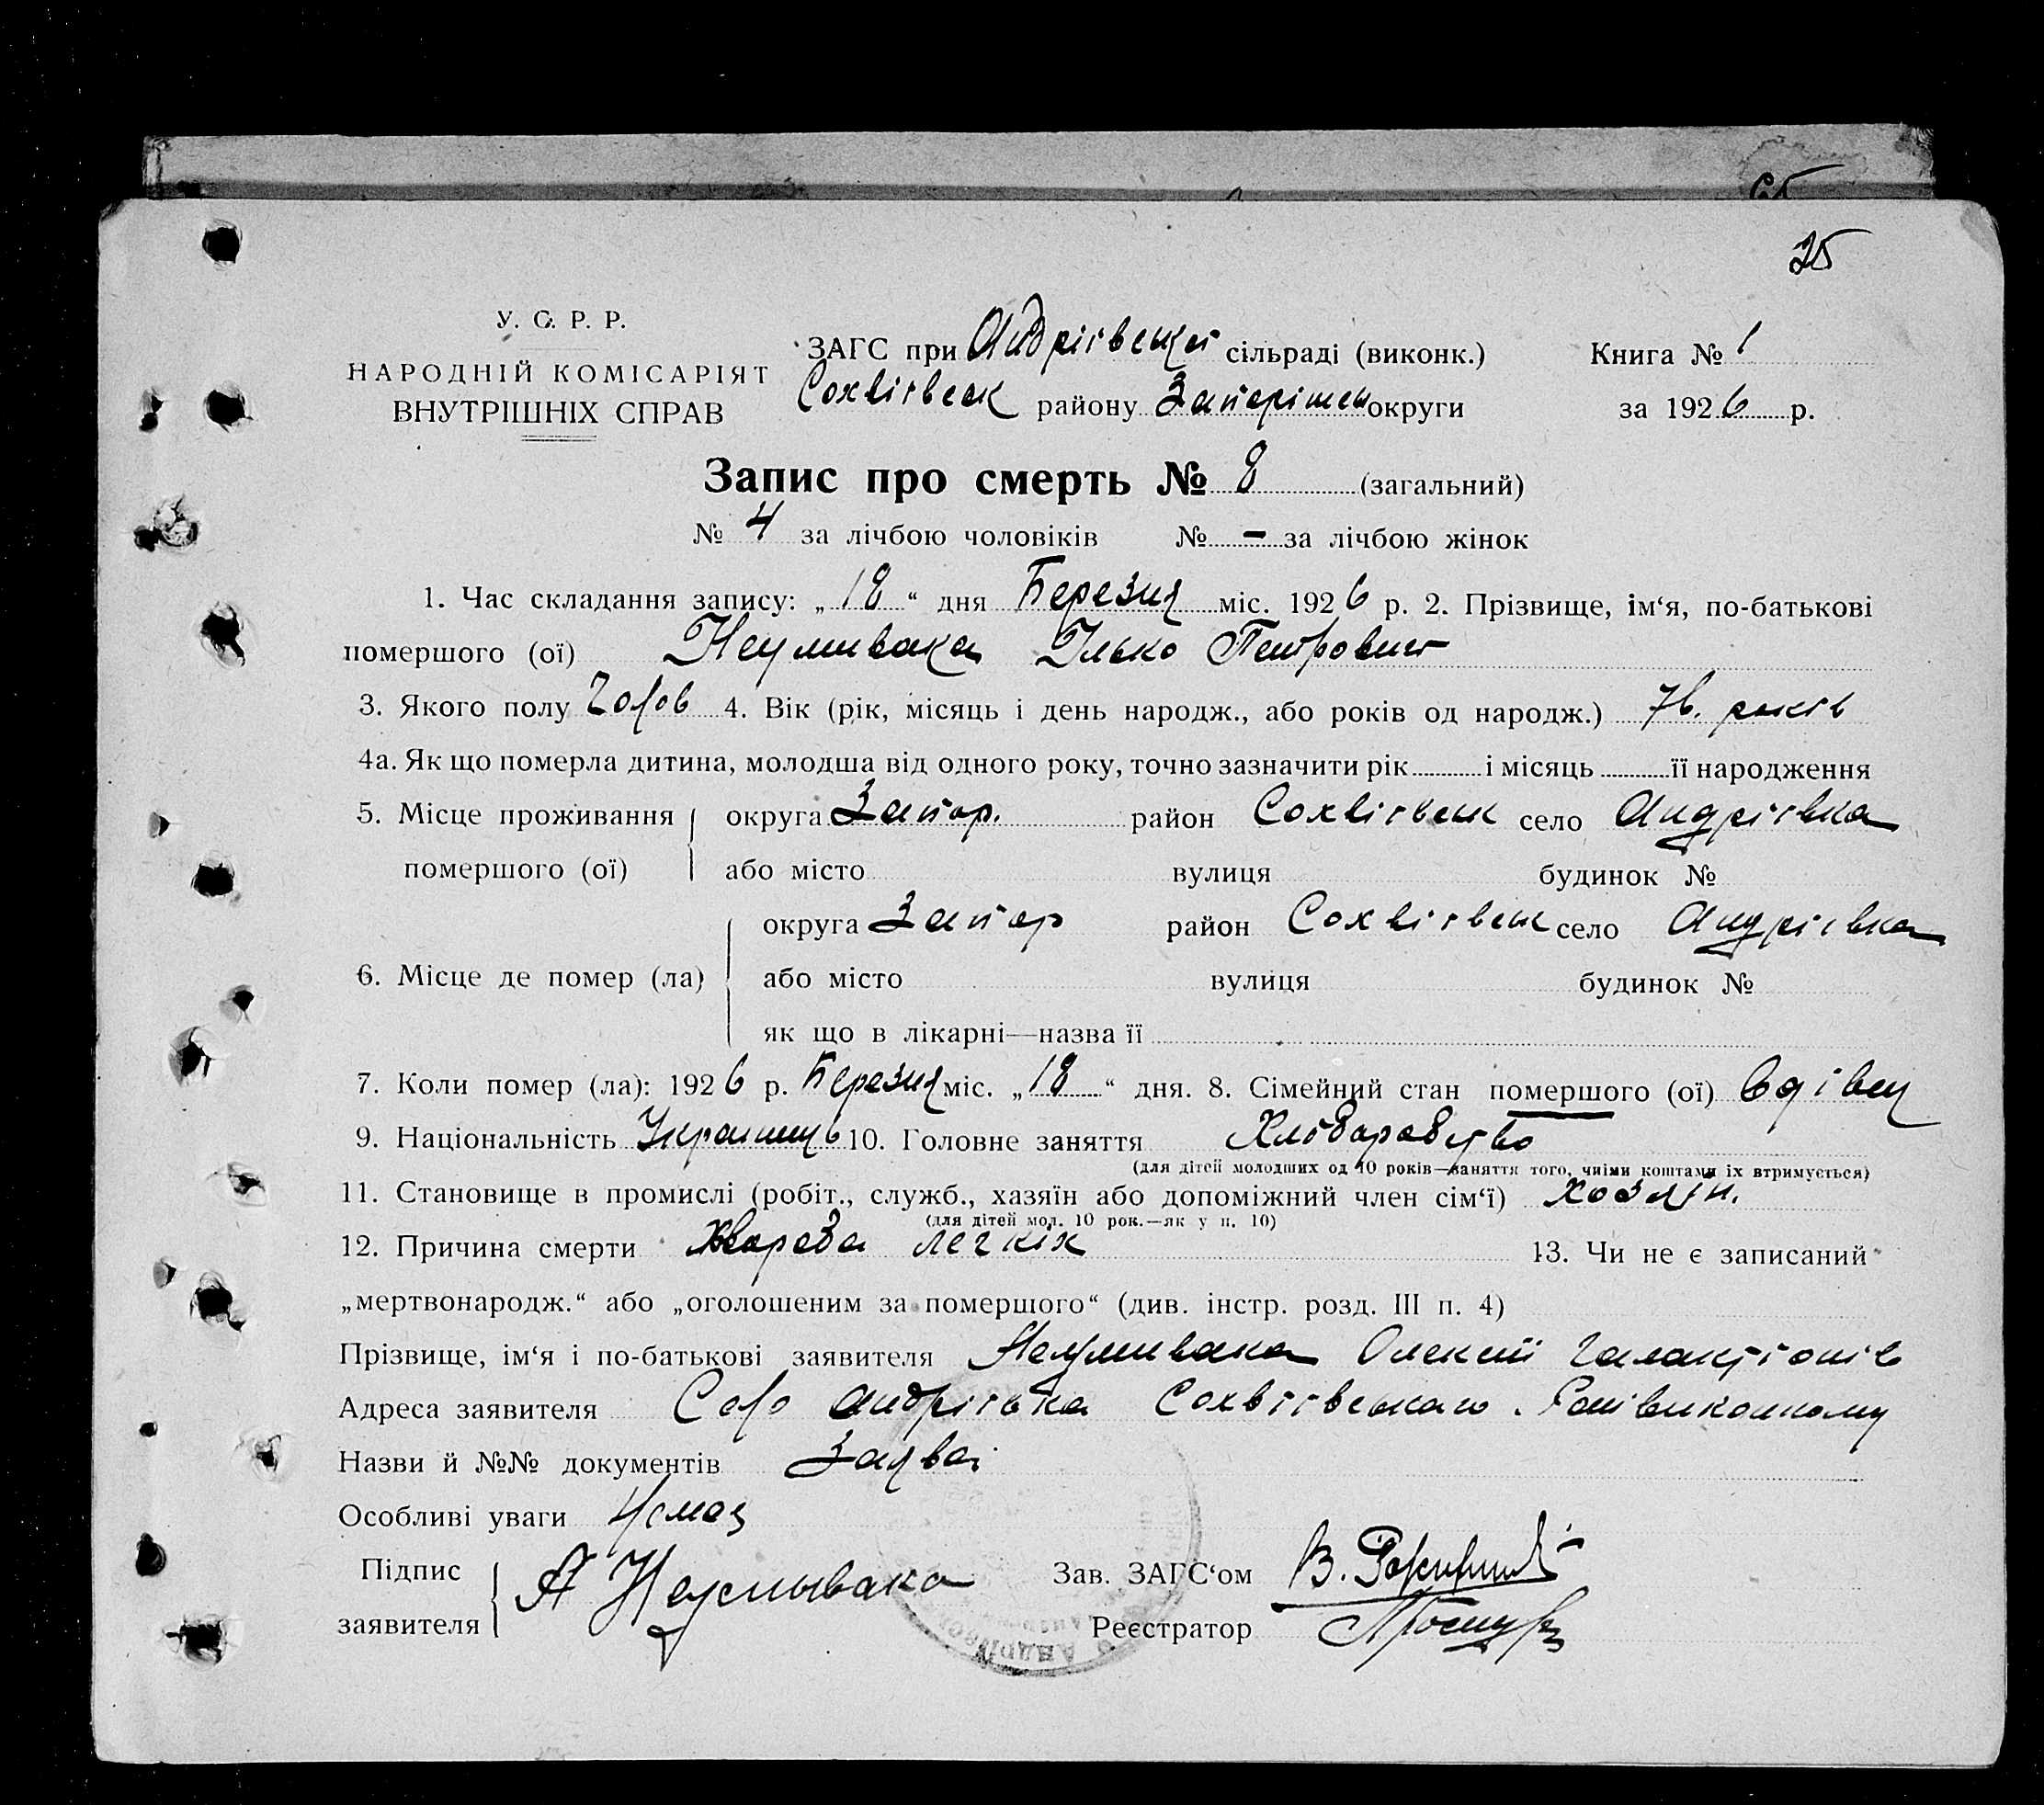 25
У. С. Р. Р.
НАРОДНІЙ КОМІСАРІЯТ
ВНУТРІШНІХ СПРАВ
ЗАГС при Андріївській сільраді (виконк.)
Софіївськ району Запоріжськ округи
Книга № 1
за 1926 р.
Запис про смерть № 8 (загальний)
№ 4 за лічбою чоловіків № – за лічбою жінок
1. Час складання запису: „18“ дня Березня міс. 1926 р. 2. Прізвище, ім‘я, по-батькові
помершого (ої) Неумивака Ілько Петрович
3. Якого полу Чолов 4. Вік (рік, місяць і день народж., або років од народж.) 76. років
4а. Як що померла дитина, молодша від одного року, точно зазначити рік і місяць її народження
5. Місце проживання округа Запор. район село Андріївка
помершого (ої) або місто вулиця будинок №
округа Запор район село Андріївка
6. Місце де помер (ла) або місто вулиця будинок №
як що в лікарні—назва її
7. Коли помер (ла): 1926 р. Березня міс. „18“ дня. 8. Сімейний стан помершого (ої) Вдівец
9. Національність Українець 10. Головне заняття Хліборобство
(для дітей молодших од 10 років—заняття того, чиїми коштами їх втримується)
11. Становище в промислі (робіт., служб., хазяїн або допоміжний член сім‘ї) Хозяїн.
(для дітей мол. 10 рок.—як у п. 10)
12. Причина смерти Хвороба легкіх 13. Чи не є записаний
„мертвонародж.“ або „оголошеним за помершого“ (див. інстр. розд. III п. 4)
Прізвище, ім‘я і по-батькові заявителя Неумивака Олексій Галактіонів
Адреса заявителя Село Андріївка
Назви й №№ документів Заява
Особливі уваги Немає
Підпис
заявителя А Неумывака
Зав. ЗАГС‘ом В.
Реєстратор